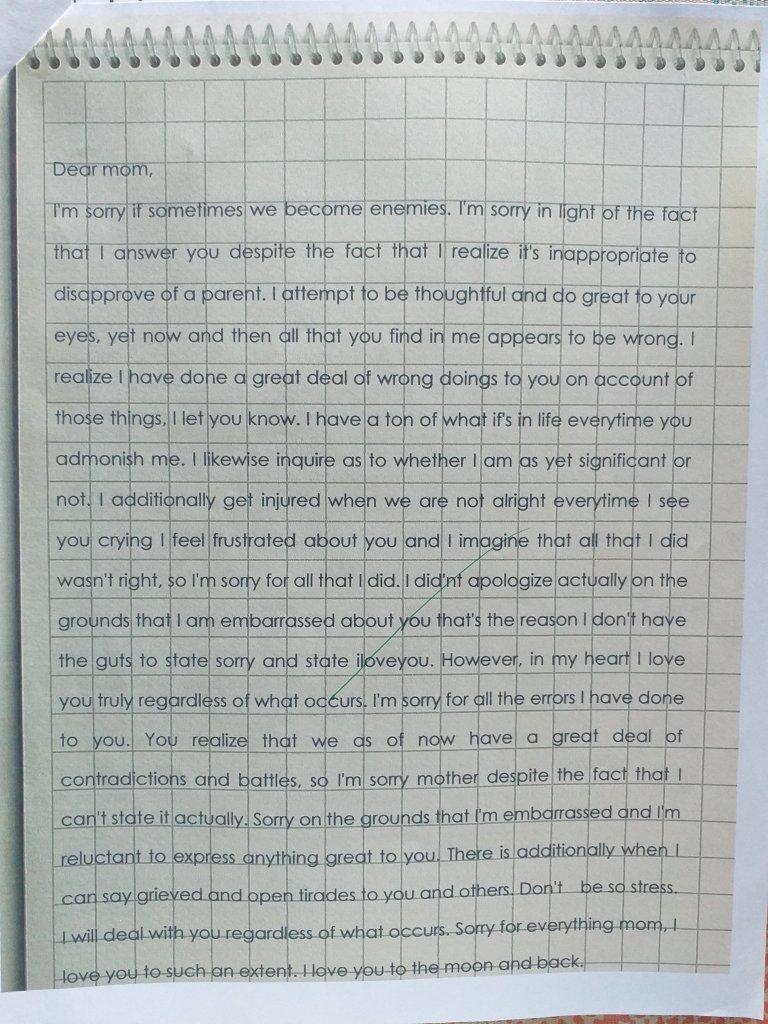 Dear mom,
I'm sorry if sometimes we become enemies. I'm sorry in light of the fact
that I answer you despite the fact that I realize it's inappropriate to
disapprove of a parent. I attempt to be thoughtful and do great to your
eyes, yet now and then all that you find in me appears to be wrong. I
realize I have done a great deal of wrong doings to you on account of
those things, I let you know. I have a ton of what if's in life everytime you
admonish me. I likewise inquire as to whether I am as yet significant or
not. I additionally get injured when we are not alright everytime I see
you crying I feel frustrated about you and I imagine that all that I did
wasn't right, so I'm sorry for all that I did. I did'nt apologize actually on the
grounds that I am embarrassed about you that's the reason I don't have
the guts to state sorry and state iloveyou. However, in my heart I love
you truly regardless of what occurs. I'm sorry for all the errors I have done
to you. You realize that we as of now have a great deal of
contradictions and battles, so I'm sorry mother despite the fact that I
can't state it actually. Sorry on the grounds that I'm embarrassed and I'm
reluctant to express anything great to you. There is additionally when I
can say grieved and open tirades to you and others. Don't be so stress.
I will deal with you regardless of what occurs. Sorry for everything mom, I
love you to such an extent. I love you to the moon and back.